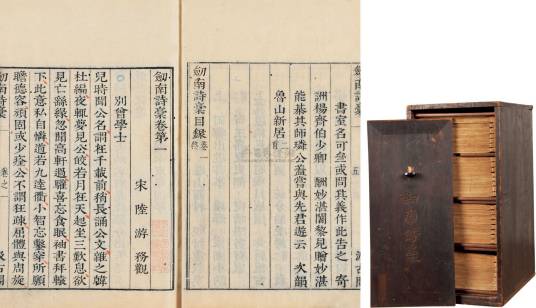 劒南詩稾
汲古閣
書室名可坐或問其義作此告之 寄
洲楊齊伯少卿 酬妙湛闍黎見贈妙湛
能棊其師璘公蓋嘗與先君遊云 次韻
魯山新居 二首
劒南詩稾目録 卷一 終
劒南詩稾卷第一
宋 陸游 務觀
別曾學士
兒時聞公名謂在千載前稍長誦公文雜之韓
杜編夜輒夢見公皎若月在天起坐三歎息欲
見亡繇緣忽聞高軒過驩喜忘食眠袖書拜轅
下此意私自憐道若九逵衢小智妄鑿穿所願
瞻德容頑固或少痊公不謂狂疎屈體與周旋
劒南詩稾
卷之一
汲古閣
劒南詩稾